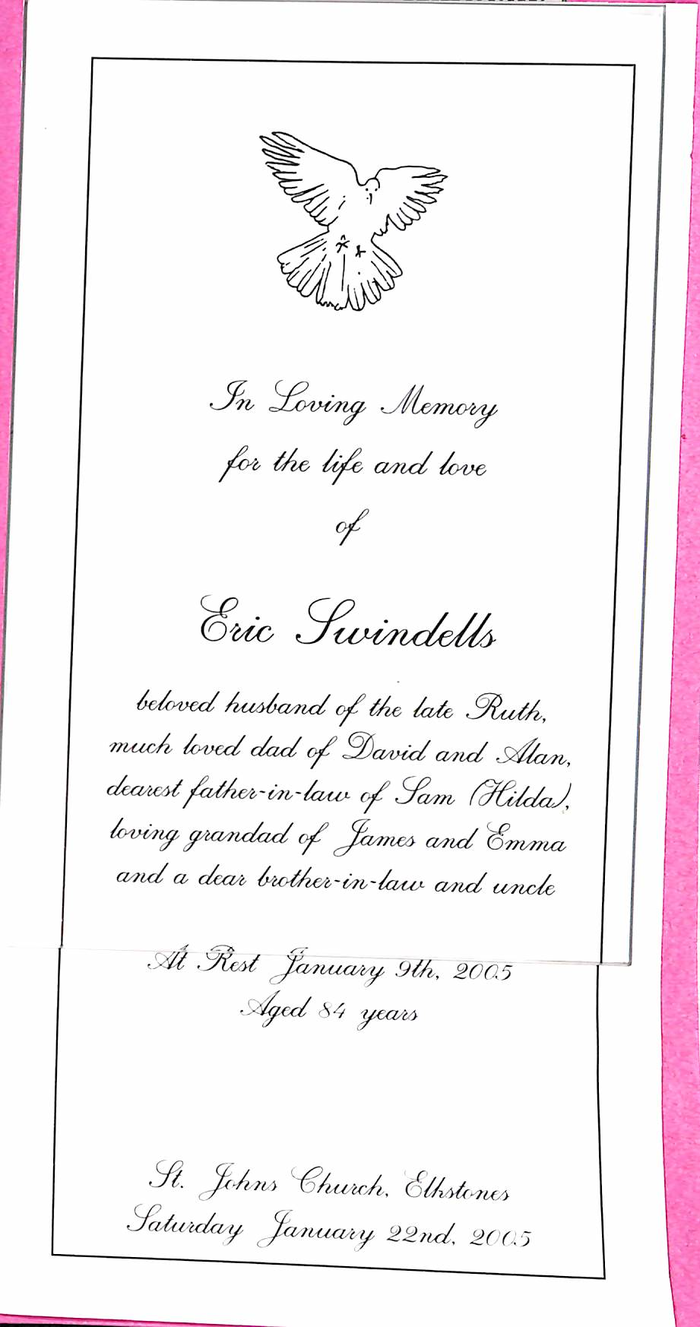 In Loving Memory
for the life and love
of
Eric Swindells
beloved husband of the late Ruth,
much loved dad of David and Alan,
dearest father-in-law of Sam (Hilda),
loving grandad of James and Emma
and a dear brother-in-law and uncle
At Rest January 9th, 2005
Aged 84 years
St. Johns Church, Elkstones
Saturday January 22nd, 2005